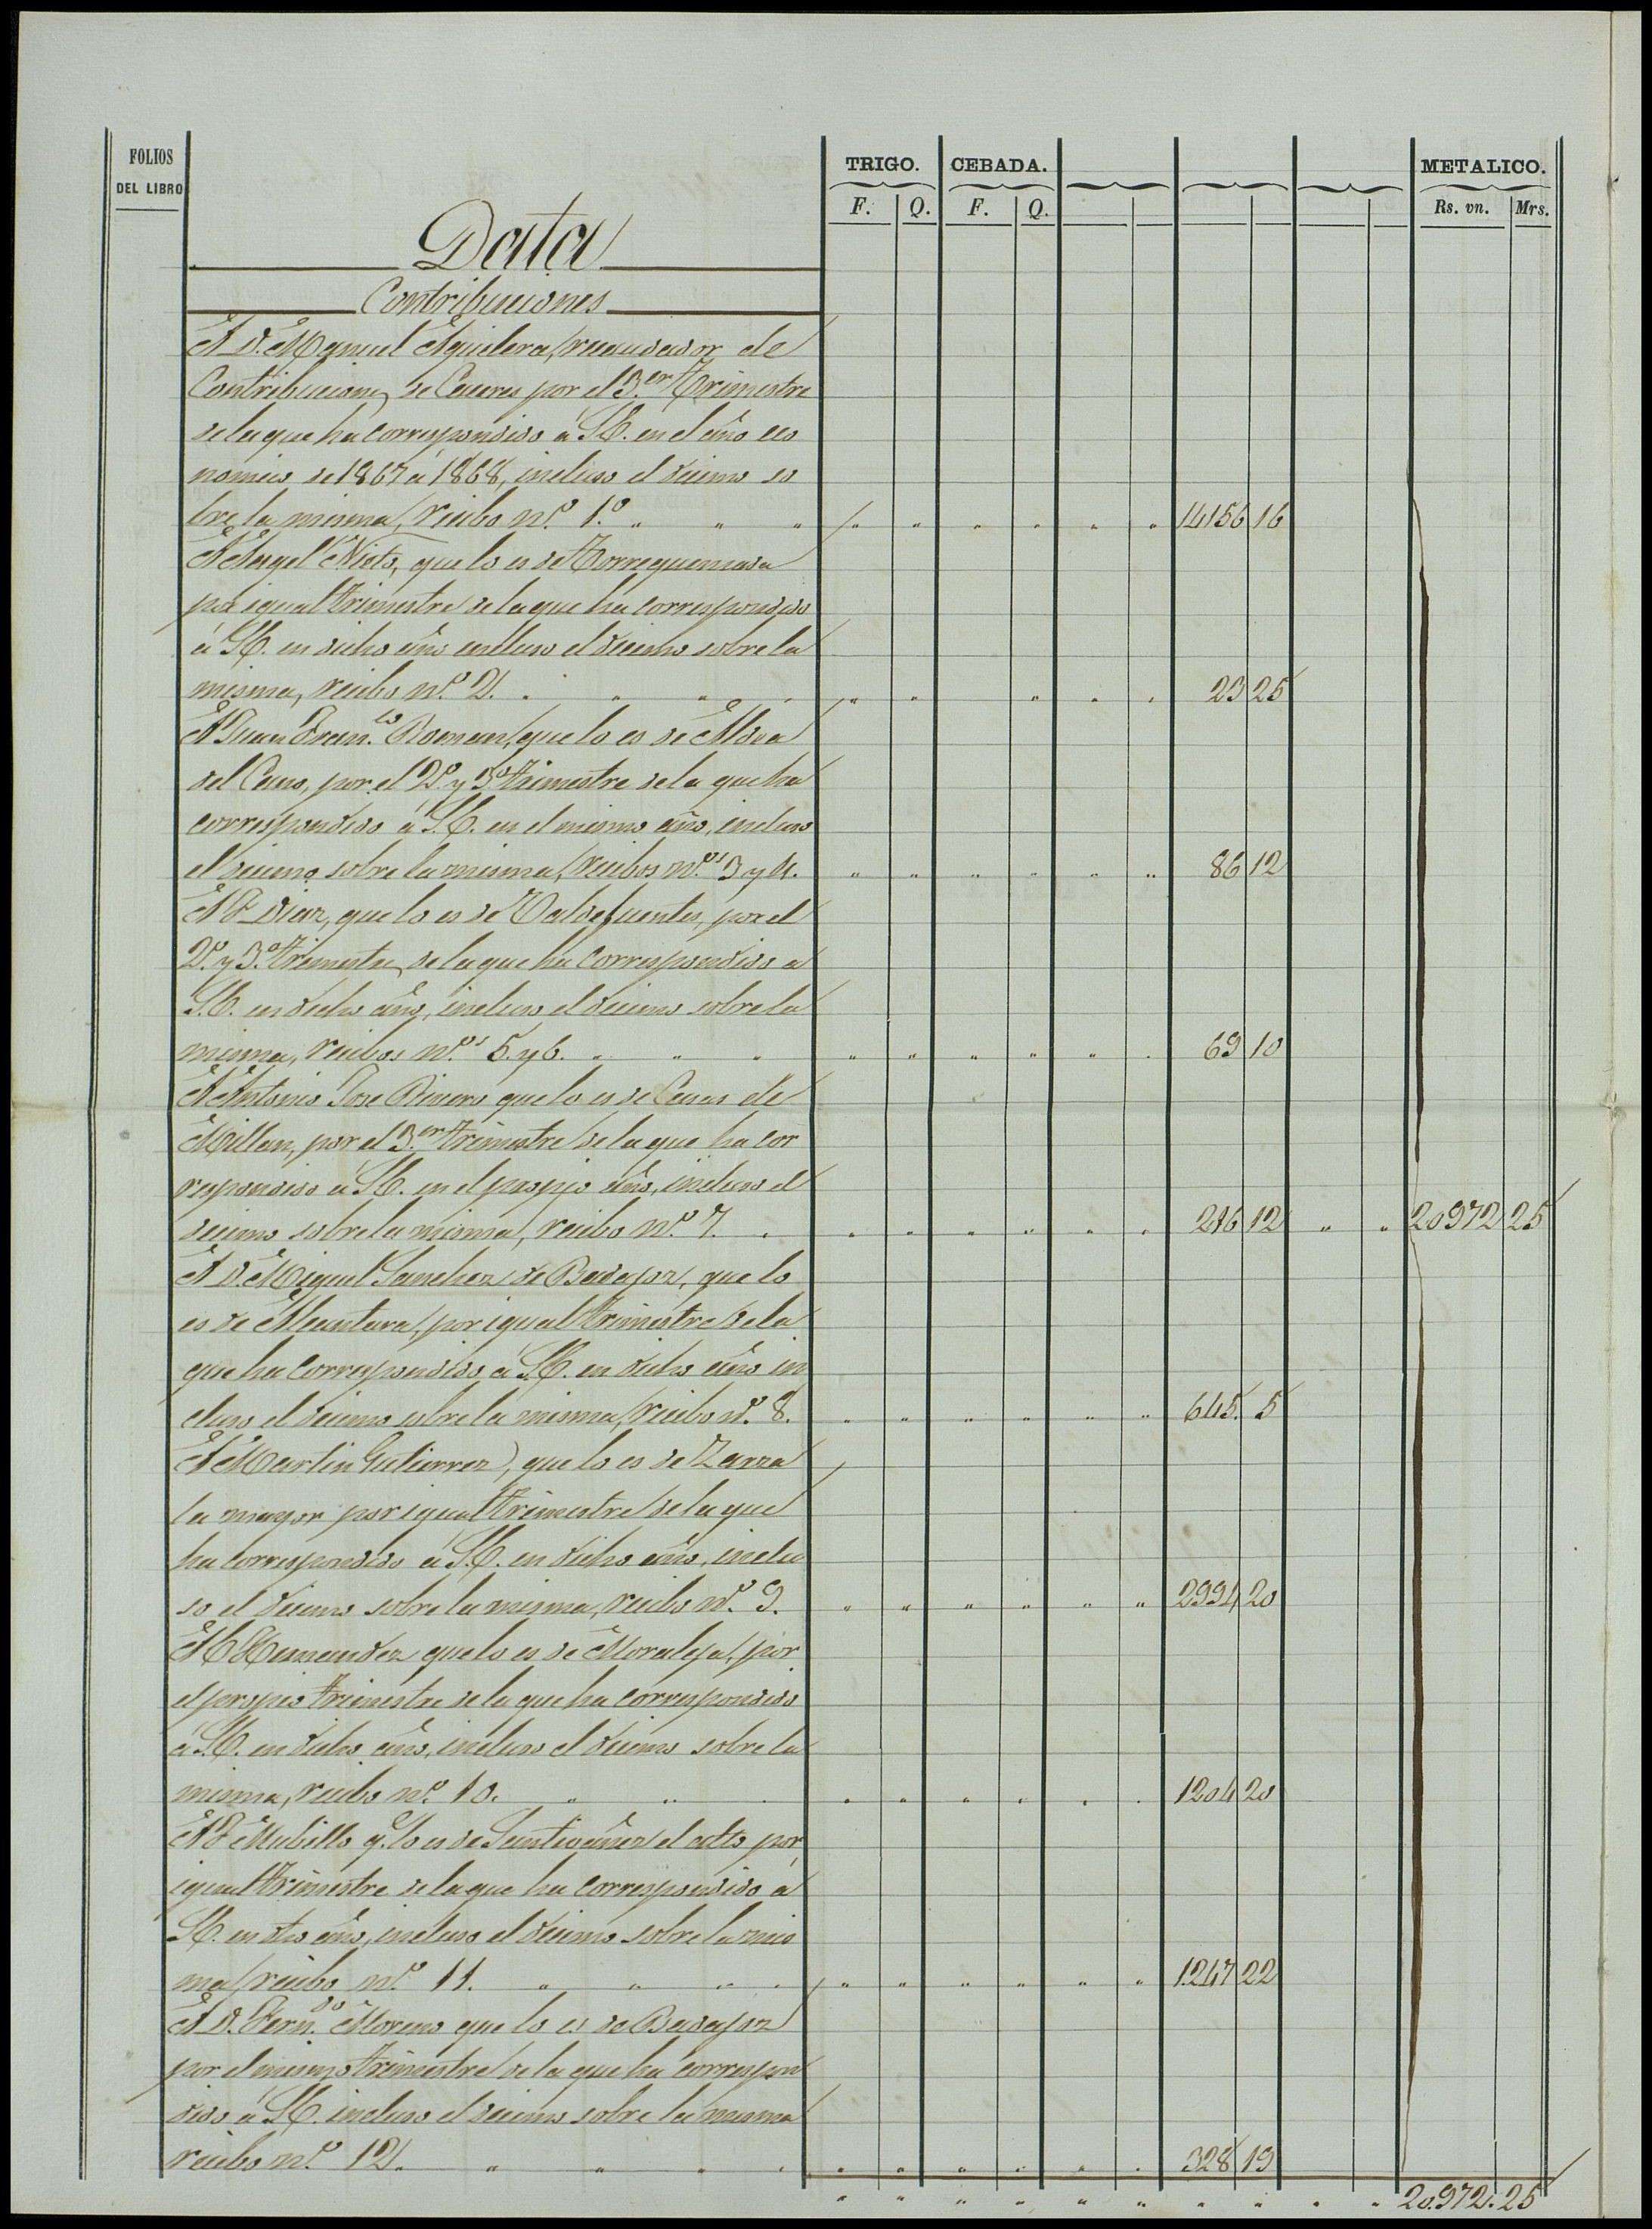 FOLIOS DEL LIBRO
TRIGO. CEBADA. METALICO.
F. Q. F. Q. Rs. vn. Mrs.
Data
Contribuciones
A D. Manuel Aguilera, recaudador de
Contribucion de Caceres por el 3.er Trimestre
de la que ha correspondido á S.E. en el año eco
nomico de 1867 á 1868, incluso el decimo so
bre la misma, recibo n.º 1.º " " " " " " " " " 14156 16
A Angel Nieto, que lo es de Torrequemada
por igual trimestre de la que ha correspondido
á S.E. en dicho año incluso el decimo sobre la
misma, recibo n.º 2. " " " " " " " " " 23 25
A Juan Fran.co Roman, que lo es de Aldea
del Cano, por el 2.º y 3.º trimestre de la que ha
correspondido á S.E. en el mismo año, incluso
el decimo sobre la misma, recibos n.os 3 y 4. " " " " " " 86 12
A P. Diaz, que lo es de Valdefuentes, por el
2.º y 3.º trimestre, de la que ha correspondido a
S.E. en dicho año, incluso el decimo sobre la
misma, recibos n.os 5. y 6. " " " " " " " " " 69 10
A Antonio Jose Rivero que lo es de Casas de
Millan, por el 3.er trimestre de la que ha cor
respondido á S.E. en el propio año, incluso el
decimo sobre la misma, recibo n.º 7. " " " " " " " 216 12 " " 20972 25
A D. Miguel Sanchez de Badajoz, que lo
es de Alcantara, por igual trimestre de la
que ha correspondido á S.E. en dicho año in
cluso el decimo sobre la misma, recibo n.º 8. " " " " " " 645. 5
A Martin Gutierrez, que lo es de Zarza
la mayor por igual trimestre de la que
ha correspondido á S.E. en dicho año, inclu
so el decimo sobre la misma, recibo n.º 9. " " " " " " 2994 20
A Hernandez que lo es de Moraleja, por
el propio trimestre de la que ha correspondido
á S.E. en dicho año, incluso el decimo sobre la
misma, recibo n.º 10. " " " " " " " " " 1204 20
A P. Mubillo q. lo es de Santivañez el alto por
igual trimestre de la que ha correspondido á
S.E. en dho año, incluso el decimo sobre la mis
ma, recibo n.º 11. " " " " " " " " " " 1.247 22
A D. Fern.do Moreno que lo es de Badajoz
por el mismo trimestre de la que ha correspon
dido á S.E. incluso el decimo sobre la misma
recibo n.º 12. " " " " " " " " " " 328 19
" " " " " " " " " " 20.972. 25